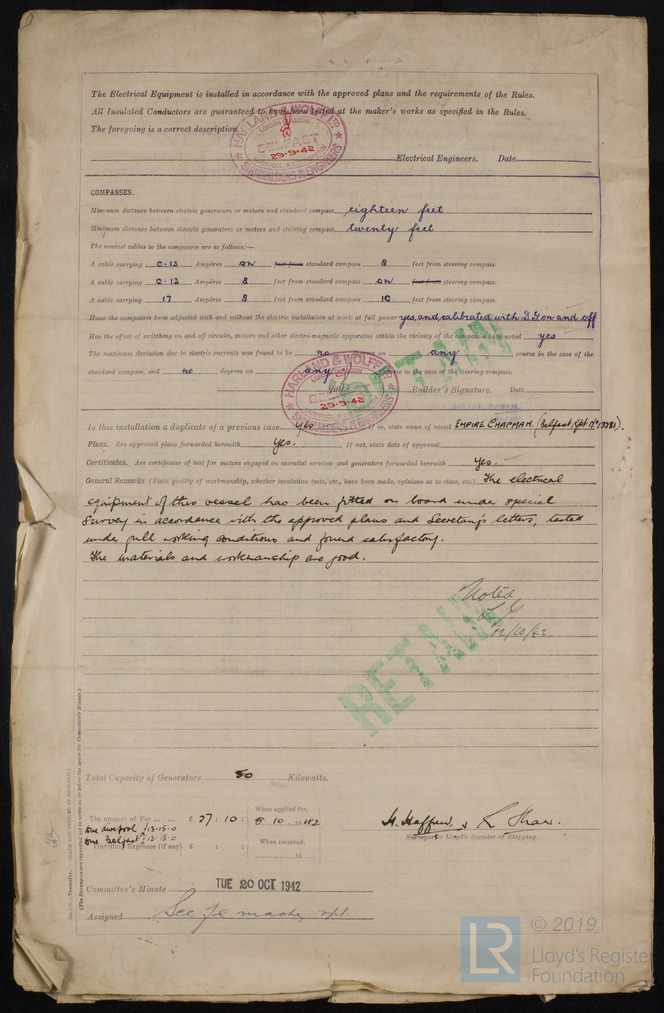 The Electrical Equipment is installed in accordance with the approved plans and the requirements of the Rules.
All Insulated Conductors are guaranteed to have been tested at the maker's works as specified in the Rules.
The foregoing is a correct description.
HARLAND & WOLFF LTD
BELFAST
29-9-42
SHIPBUILDERS & ENGINEERS
Electrical Engineers. Date
COMPASSES.
Minimum distance between electric generators or motors and standard compass eighteen feet
Minimum distance between electric generators or motors and steering compass twenty feet
The nearest cables to the compasses are as follows:—
A cable carrying 0.13 Ampères on feet from standard compass 8 feet from steering compass.
A cable carrying 0.13 Ampères 8 feet from standard compass on feet from steering compass.
A cable carrying 17 Ampères 8 feet from standard compass 10 feet from steering compass.
Have the compasses been adjusted with and without the electric installation at work at full power yes, and calibrated with D.G on and off
Has the effect of switching on and off circuits, motors and other electro-magnetic apparatus within the vicinity of the compasses been noted yes
The maximum deviation due to electric currents was found to be no on any course in the case of the
standard compass, and no degrees on any course in the case of the steering compass.
HARLAND & WOLFF LTD
BELFAST
29-9-42
LIVERPOOL
SHIPBUILDERS & ENGINEERS
RETAIN
Builder's Signature. Date
Is this installation a duplicate of a previous case Yes If so, state name of vessel EMPIRE CHAPMAN. (Belfast Rpt No
Plans. Are approved plans forwarded herewith Yes. If not, state date of approval
Certificates. Are certificates of test for motors engaged on essential services and generators forwarded herewith Yes.
General Remarks (State quality of workmanship, whether insulation tests, etc., have been made, opinions as to class, etc.) The electrical
equipment of this vessel has been fitted on board under special
Survey in accordance with the approved plans and Secretary's letters, tested
under full working conditions and found satisfactory.
The materials and workmanship are good.
Noted
12/10/42.
RETAIN
Total Capacity of Generators 50 Kilowatts.
The amount of Fee £ 27 : 10 : When applied for, 9 10 1942
one Liverpool £13-15-0
one Belfast £13-15-0
Travelling Expenses (if any) £ : : When received, 19
R. Shaw.
Surveyors Lloyd's Register of Shipping.
Committee's Minute TUE 20 OCT 1942
Assigned See
(The Surveyors are requested not to write on or below the space for Committee's Minute.)
© 2019
LR
Lloyd's Register
Foundation